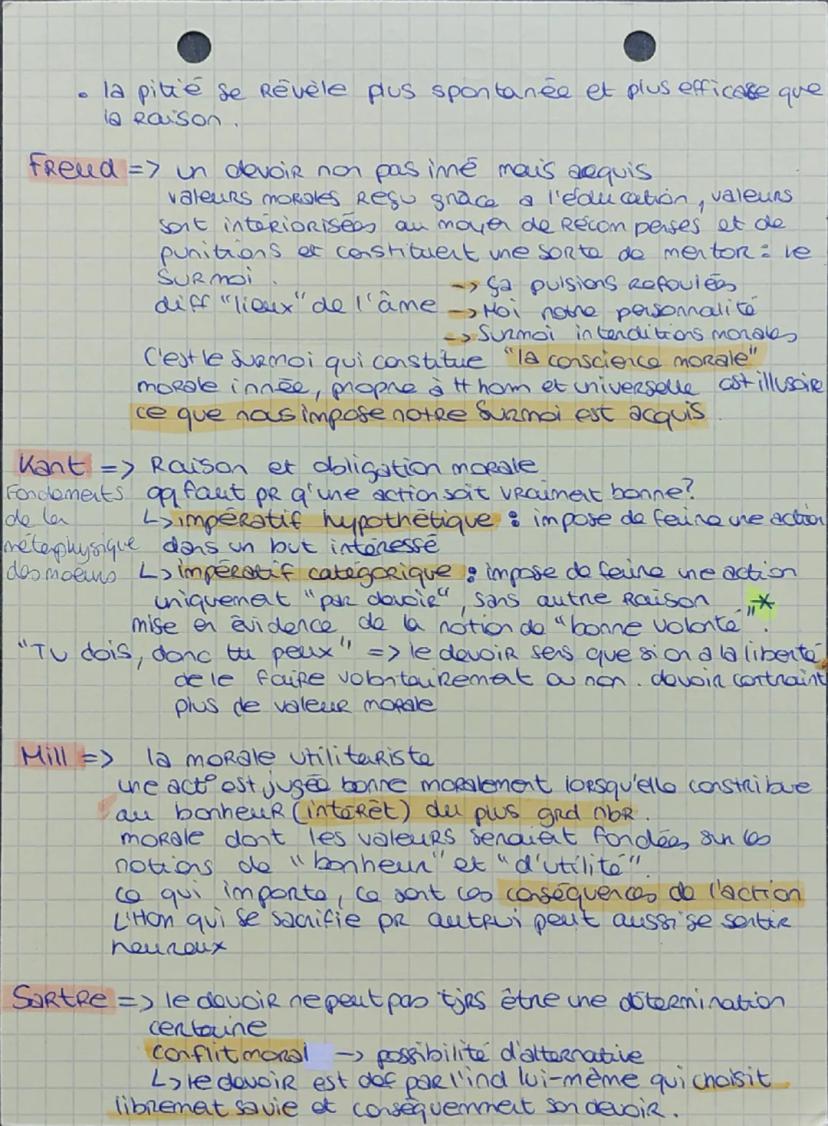 • la pitié se Révèle plus spontanée et plus efficace que
la Raison.
Freud => un devoir non pas inné mais acquis
valeurs morales Reçu grâce a l'éducation, valeurs
sont intériorisées au moyen de Récompenses et de
punitions et constituent une sorte de mentor : le
surmoi.
-> ça pulsions refoulées
diff "lieux" de l'âme -> Moi notre personnalité
-> Surmoi interditions morales
C'est le surmoi qui constitue "la conscience morale"
morale innée, propre à tt hom et universelle est illusoire
ce que nous impose notre Surmoi est acquis.
Kant => Raison et obligation morale
Fondements qq faut pr q'une action soit vraiment bonne?
de la ↳ impératif hypothétique : impose de faire une action
métaphysique dans un but intéressé
des moeurs ↳ impératif catégorique : impose de faire une action
uniquement "par devoir", sans autre Raison *
mise en évidence de la notion de "bonne volonté".
"Tu dois, donc tu peux" => le devoir sens que si on a la liberté
de le faire volontairement ou non. devoir contraint
plus de valeur morale
Mill => la morale utilitariste
une act° est jugée bonne moralement lorsqu'elle constribue
au bonheur (intérêt) du plus grd nbr.
morale dont les valeurs seraient fondées sur les
notions de "bonheur" et "d'utilité".
ce qui importe, ce sont les conséquences de l'action
L'Hom qui se sacrifie pr autrui peut aussi se sentir
heureux
Sartre => le devoir ne peut pas tjrs être une détermination
certaine
conflit moral -> possibilité d'alternative
↳ le devoir est def par l'ind lui-même qui choisit
librement sa vie et conséquemment son devoir.